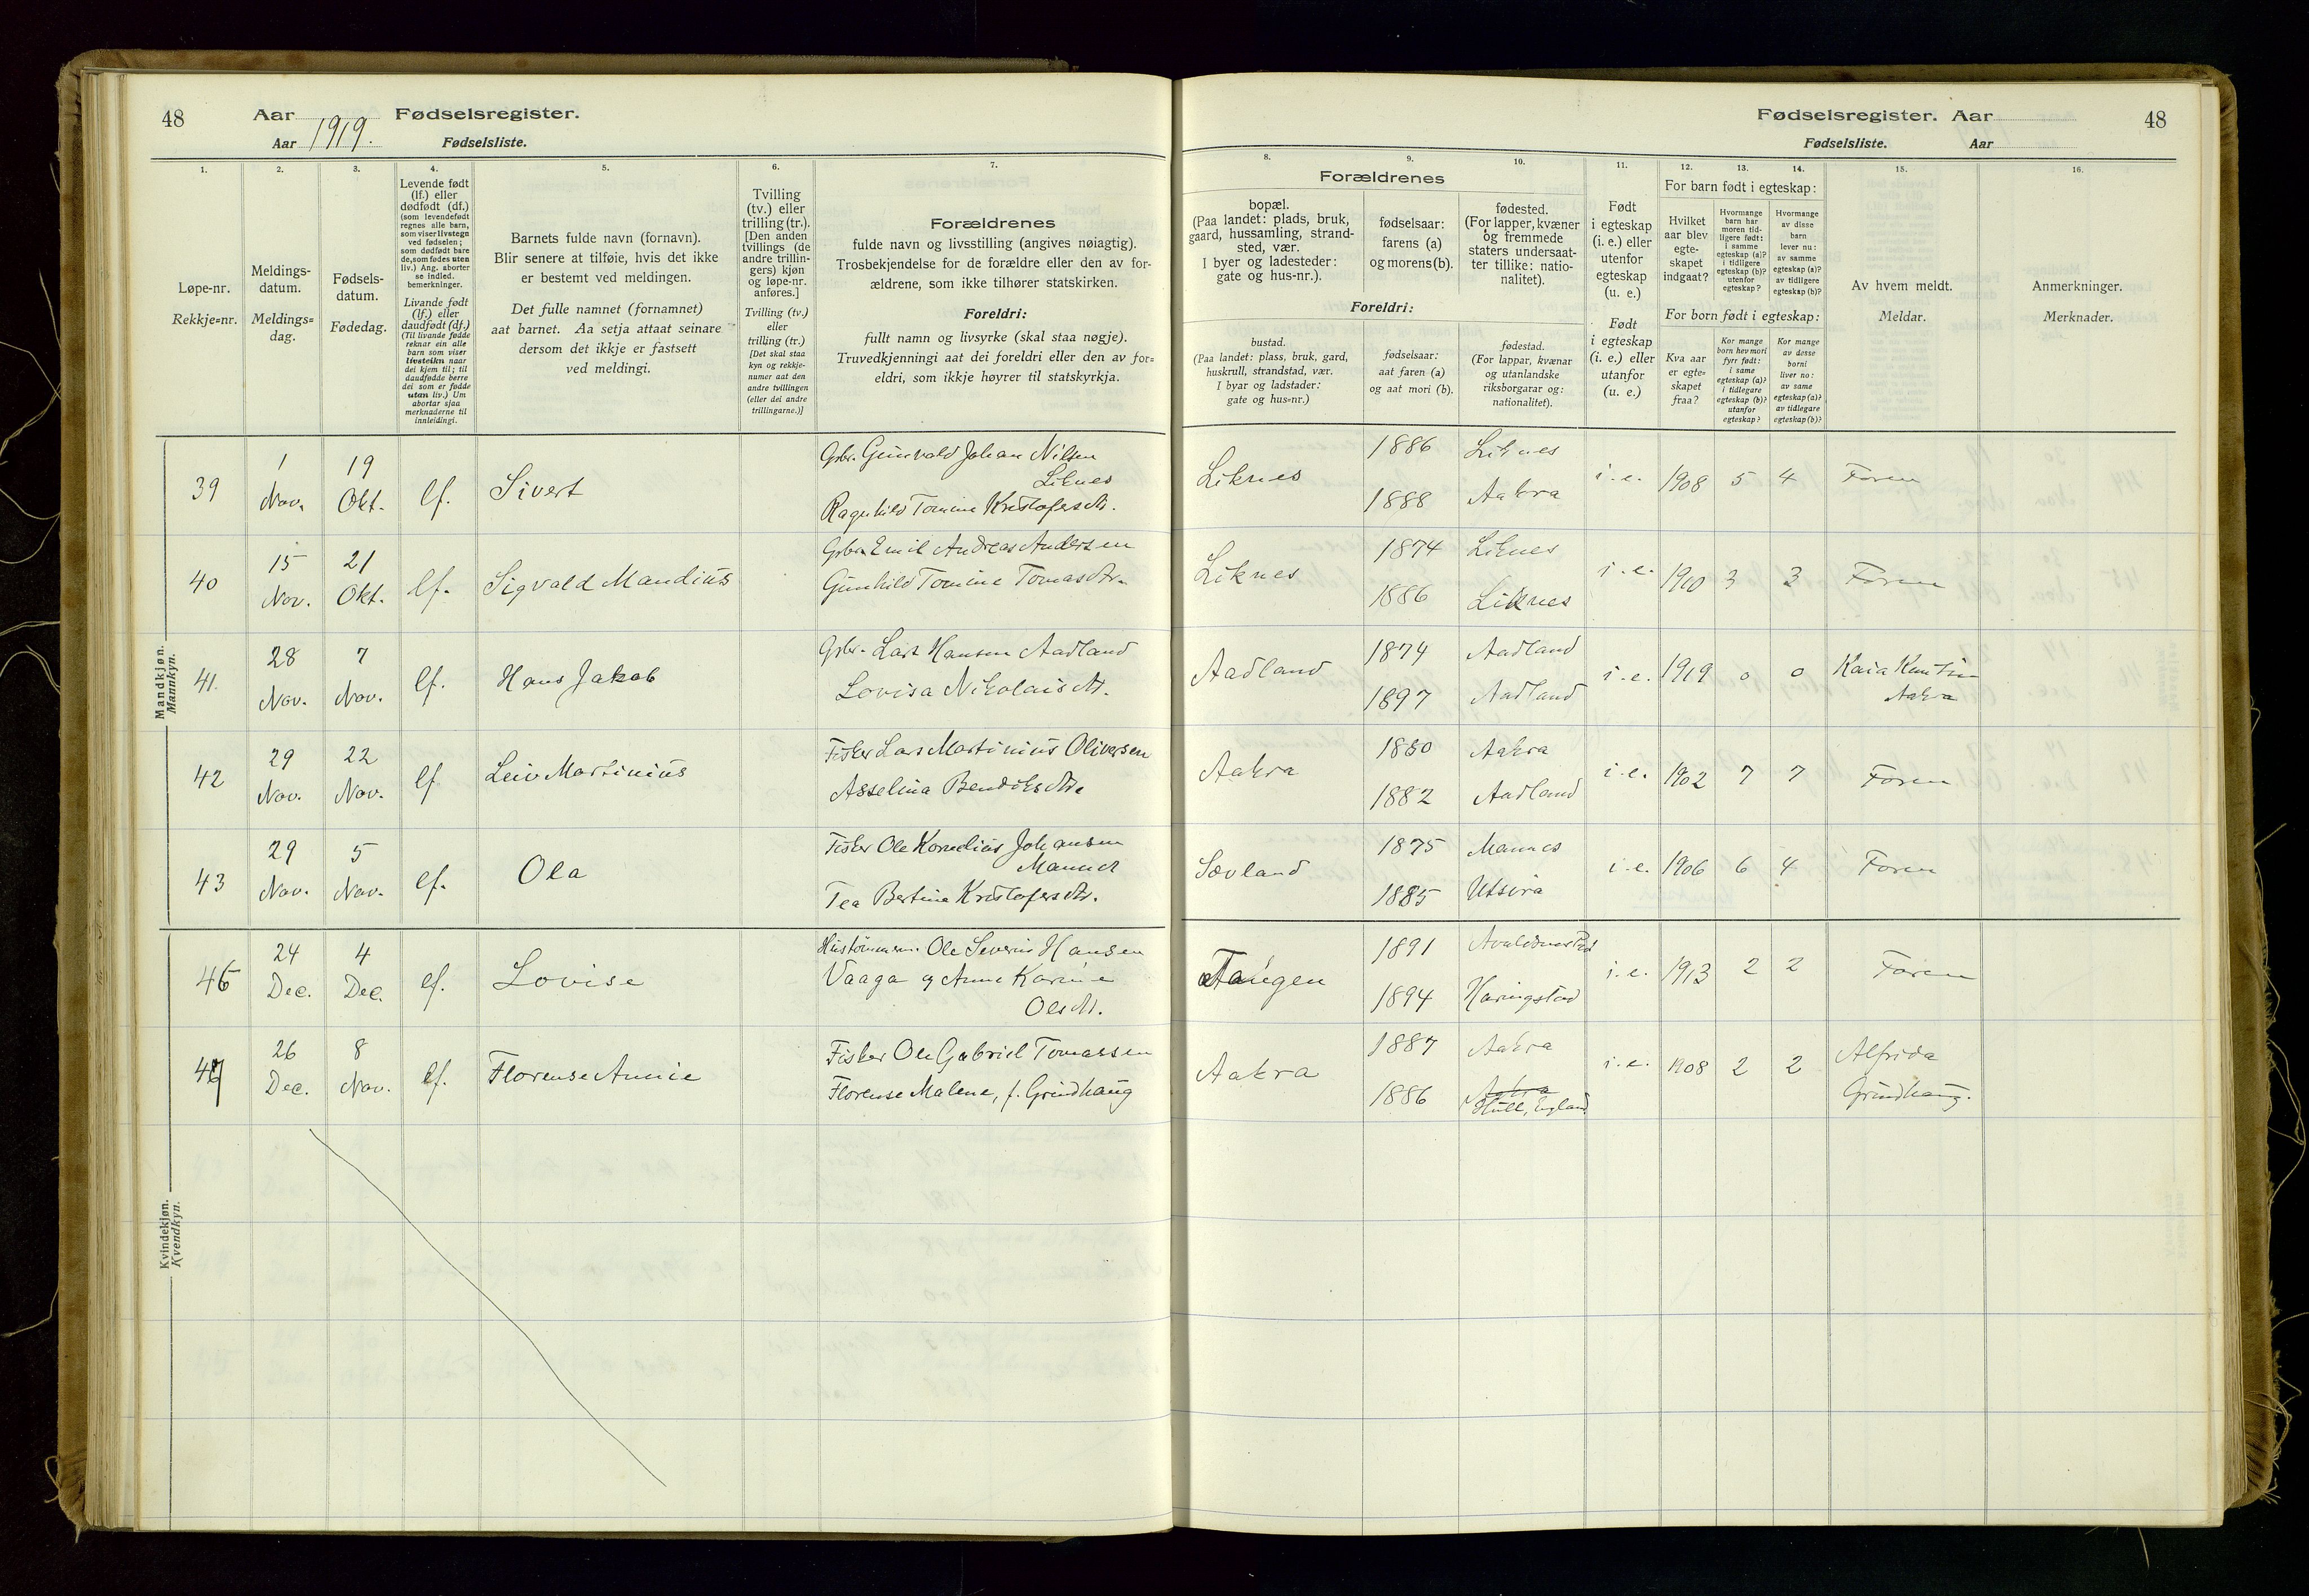 48 Aar Fødselsregister.
Aar 1919. Fødselsliste.
Fødselsregister. Aar 48
Fødselsliste. Aar
1. 2. 3. 4. 5. 6. 7.
Løpe-nr.
Rekkje=nr.
Meldings-
datum.
Meldings=
dag.
Fødsels-
datum.
Fødedag.
Levende født
(lf.) eller
dødfødt (df.)
(som levendefødt
regnes alle barn,
som viser livstegn
ved fødselen;
som dødfødt bare
de, som fødes uten
liv.) Ang. aborter
se indled.
bemerkninger.
Livande født
(lf.) eller
daudfødt (df.)
(Til livande fødde
reknar ein alle
barn som viser
livsteikn naar
dei kjem til; til
daudfødde berre
dei som er fødde
utan liv.) Um
abortar sjaa
merknaderne til
innleidingi.
Barnets fulde navn (fornavn).
Blir senere at tilføie, hvis det ikke
er bestemt ved meldingen.
Det fulle namnet (fornamnet)
aat barnet. Aa setja attaat seinare
dersom det ikkje er fastsett
ved meldingi.
Tvilling
(tv.) eller
trilling (tr.).
[Den anden
tvillings (de
andre trillin-
gers) kjøn
og løpe-nr.
anføres.]
Tvilling (tv.)
eller
trilling (tr.)
[Det skal staa
kyn og rekkje-
numer aat den
andre tvillingen
(eller dei andre
trillingarne.)]
Forældrenes
fulde navn og livsstilling (angives nøiagtig).
Trosbekjendelse for de forældre eller den av for-
ældrene, som ikke tilhører statskirken.
Foreldri:
fullt namn og livsyrke (skal staa nøgje).
Truvedkjenningi aat dei foreldri eller den av for=
eldri, som ikkje høyrer til statskyrkja.
8. 9. 10. 11. 12. 13. 14. 15. 16.
Forældrenes
bopæl.
(Paa landet: plads, bruk,
gaard, hussamling, strand-
sted, vær.
I byer og ladesteder:
gate og hus-nr.).
fødselsaar:
farens (a)
og morens (b).
fødested.
(For lapper, kvæner
og fremmede
staters undersaat-
ter tillike: natio-
nalitet).
Foreldri:
bustad.
(Paa landet: plass, bruk, gard,
huskrull, strandstad, vær.
I byar og ladstader:
gate og hus=nr.)
fødselsaar:
aat faren (a)
og aat mori (b).
fødestad.
(For lappar, kvænar
og utanlandske
riksborgarar og:
nationalitet).
Født
i egteskap
(i. e.) eller
utenfor
egteskap
(u. e.)
Født
i egteskap
(i. e.) eller
utanfor
(u. e.)
For barn født i egteskap:
Hvilket
aar blev
egte-
skapet
indgaat?
Hvormange
barn har
moren tid-
ligere født:
i samme
egteskap (a)?
i tidligere
egteskap (b)?
utenfor
egteskap?
Hvormange
av disse
barn
lever nu:
av samme
egteskap (a)?
av tidligere
egteskap (b)?
For born født i egteskap:
Kva aar
er egte=
skapet
fraa?
Kor mange
born hev mori
fyrr født:
i same
egteskap (a)?
i tidlegare
egteskap (b)?
utanfor
egteskap?
Kor mange
av desse
borni
liver no:
av same
egteskap (a)?
av tidlegare
egteskap (b)?
Av hvem meldt.
Meldar.
Anmerkninger.
Merknader.
Mandkjøn.
Mannkyn.
39 1 Nov. 19 Okt. lf. Sivert Gbr. Gunvald Johan Nilsen
Liknes
Ragnhild Tomine Kristofersdtr.
Liknes 1886 Liknes i. e. 1908 5 4 Faren
1888 Aakra
40 15 Nov. 21 Okt. lf. Sigvald Mandius Gbr. Emil Andreas Andersen
Gunhild Tomine Tomasdtr.
Liknes 1874 Liknes i. e. 1910 3 3 Faren
1886 Liknes
41. 28 Nov. 7 Nov. lf. Hans Jakob Gbr. Lars Hansen Aadland
Lovisa Nikolaisdtr.
Aadland 1874 Aadland i. e. 1919 0 0 Kaia
1897 Aadland Aakra
42 29 Nov. 22 Nov. lf. Leiv Martinius Fisker Lars Martinius Oliversen
Asselina Bendiksdtr.
Aakra 1880 Aakra i. e. 1902 7 7 Faren
1882 Aadland
43 29 Nov. 5 Nov. lf. Ola Fisker Ole Kornelius Johansen
Mannes
Tea Bertine Kristofersdtr.
Sævland 1875 Mannes i. e. 1906 6 4 Faren
1885 Utsira
Kvindekjøn.
Kvendkyn.
46 24 Dec. 4 Dec. lf. Lovise Ole Severin Hansen
Vaaga og Anne Karine
Olsdtr.
Tangen 1891 i. e. 1913 2 2 Faren
1894 Haringstad
47 26 Dec. 8 Nov. lf. Florense Annie Fisker Ole Gabriel Tomassen
Florense Malene, f. Grindhaug
Aakra 1887 Aakra i. e. 1908 2 2 Alfrida
1886 Aakra Grindhaug.
Hull, England